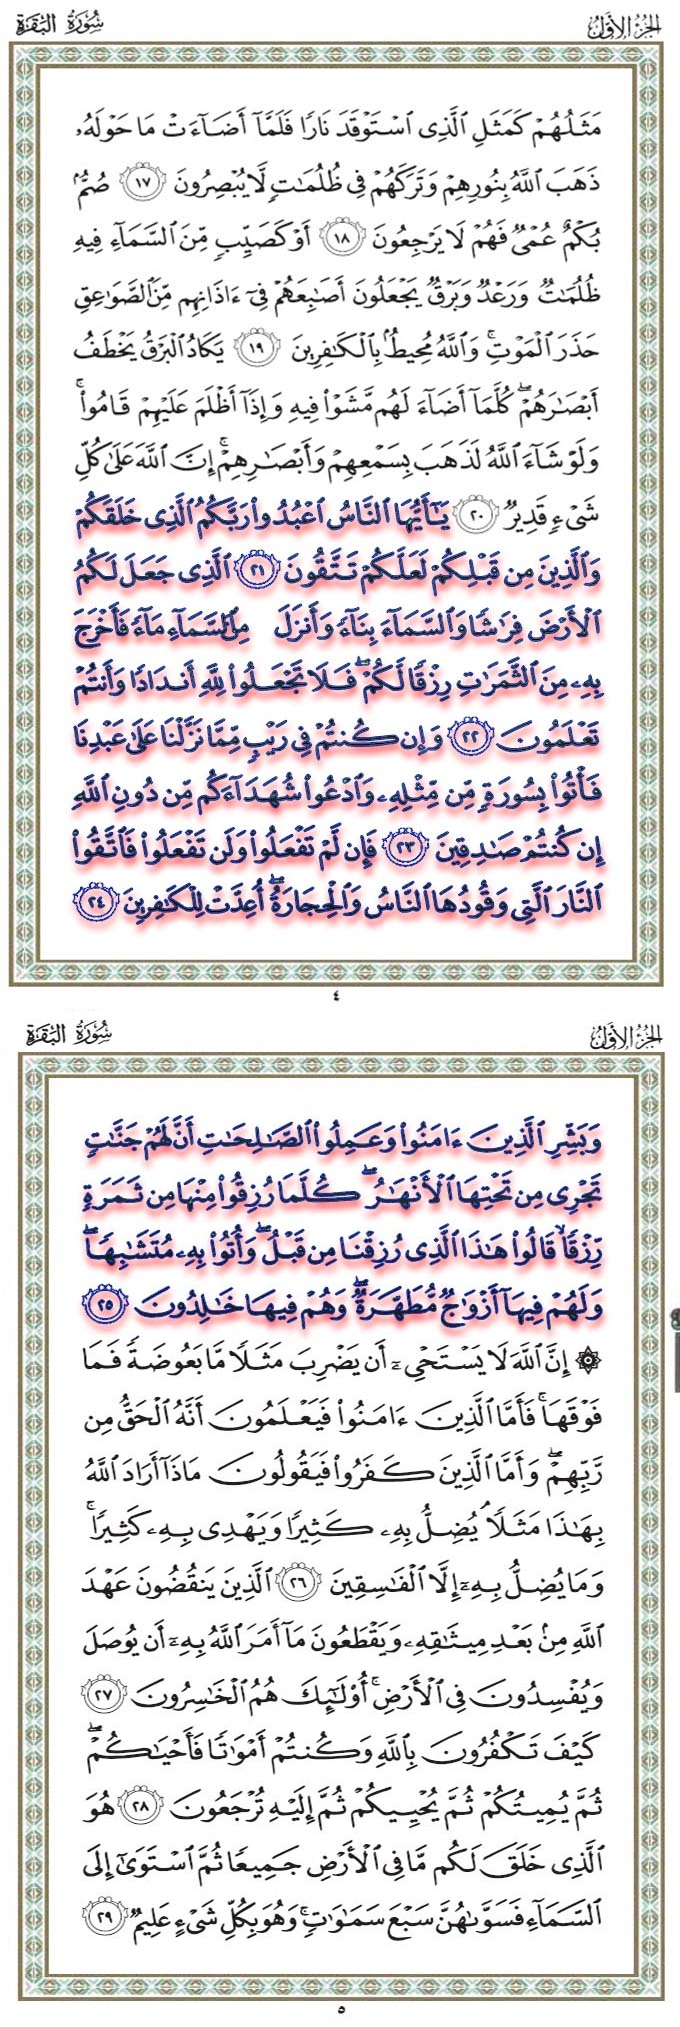 الجزء الأول
سورة البقرة
مَثَلُهُمْ كَمَثَلِ الَّذِي اسْتَوْقَدَ نَارًا فَلَمَّا أَضَاءَتْ مَا حَوْلَهُ
ذَهَبَ اللَّهُ بِنُورِهِمْ وَتَرَكَهُمْ فِي ظُلُمَاتٍ لَّا يُبْصِرُونَ ١٧ صُمٌّ
بُكْمٌ عُمْيٌ فَهُمْ لَا يَرْجِعُونَ ١٨ أَوْ كَصَيِّبٍ مِّنَ السَّمَاءِ فِيهِ
ظُلُمَاتٌ وَرَعْدٌ وَبَرْقٌ يَجْعَلُونَ أَصَابِعَهُمْ فِي ءَاذَانِهِم مِّنَ الصَّوَاعِقِ
حَذَرَ الْمَوْتِ ۚ وَاللَّهُ مُحِيطٌ بِالْكَافِرِينَ ١٩ يَكَادُ الْبَرْقُ يَخْطَفُ
أَبْصَارَهُمْ ۖ كُلَّمَا أَضَاءَ لَهُم مَّشَوْا فِيهِ وَإِذَا أَظْلَمَ عَلَيْهِمْ قَامُوا ۚ
وَلَوْ شَاءَ اللَّهُ لَذَهَبَ بِسَمْعِهِمْ وَأَبْصَارِهِمْ ۚ إِنَّ اللَّهَ عَلَىٰ كُلِّ
شَيْءٍ قَدِيرٌ ٢٠ يَٰأَيُّهَا النَّاسُ اعْبُدُوا رَبَّكُمُ الَّذِي خَلَقَكُمْ
وَالَّذِينَ مِن قَبْلِكُمْ لَعَلَّكُمْ تَتَّقُونَ ٢١ الَّذِي جَعَلَ لَكُمُ
الْأَرْضَ فِرَاشًا وَالسَّمَاءَ بِنَاءً وَأَنزَلَ مِنَ السَّمَاءِ مَاءً فَأَخْرَجَ
بِهِ مِنَ الثَّمَرَاتِ رِزْقًا لَّكُمْ ۖ فَلَا تَجْعَلُوا لِلَّهِ أَندَادًا وَأَنتُمْ
تَعْلَمُونَ ٢٢ وَإِن كُنتُمْ فِي رَيْبٍ مِّمَّا نَزَّلْنَا عَلَىٰ عَبْدِنَا
فَأْتُوا بِسُورَةٍ مِّن مِّثْلِهِ وَادْعُوا شُهَدَاءَكُم مِّن دُونِ اللَّهِ
إِن كُنتُمْ صَادِقِينَ ٢٣ فَإِن لَّمْ تَفْعَلُوا وَلَن تَفْعَلُوا فَاتَّقُوا
النَّارَ الَّتِي وَقُودُهَا النَّاسُ وَالْحِجَارَةُ ۖ أُعِدَّتْ لِلْكَافِرِينَ ٢٤
٤
الجزء الأول
سورة البقرة
وَبَشِّرِ الَّذِينَ ءَامَنُوا وَعَمِلُوا الصَّالِحَاتِ أَنَّ لَهُمْ جَنَّاتٍ
تَجْرِي مِن تَحْتِهَا الْأَنْهَارُ ۖ كُلَّمَا رُزِقُوا مِنْهَا مِن ثَمَرَةٍ
رِّزْقًا ۙ قَالُوا هَٰذَا الَّذِي رُزِقْنَا مِن قَبْلُ ۖ وَأُتُوا بِهِ مُتَشَابِهًا ۖ
وَلَهُمْ فِيهَا أَزْوَاجٌ مُّطَهَّرَةٌ ۖ وَهُمْ فِيهَا خَالِدُونَ ٢٥
۞ إِنَّ اللَّهَ لَا يَسْتَحْيِي أَن يَضْرِبَ مَثَلًا مَّا بَعُوضَةً فَمَا
فَوْقَهَا ۚ فَأَمَّا الَّذِينَ ءَامَنُوا فَيَعْلَمُونَ أَنَّهُ الْحَقُّ مِن
رَّبِّهِمْ ۖ وَأَمَّا الَّذِينَ كَفَرُوا فَيَقُولُونَ مَاذَا أَرَادَ اللَّهُ
بِهَٰذَا مَثَلًا ۘ يُضِلُّ بِهِ كَثِيرًا وَيَهْدِي بِهِ كَثِيرًا ۚ
وَمَا يُضِلُّ بِهِ إِلَّا الْفَاسِقِينَ ٢٦ الَّذِينَ يَنقُضُونَ عَهْدَ
اللَّهِ مِن بَعْدِ مِيثَاقِهِ وَيَقْطَعُونَ مَا أَمَرَ اللَّهُ بِهِ أَن يُوصَلَ
وَيُفْسِدُونَ فِي الْأَرْضِ ۚ أُولَٰئِكَ هُمُ الْخَاسِرُونَ ٢٧
كَيْفَ تَكْفُرُونَ بِاللَّهِ وَكُنتُمْ أَمْوَاتًا فَأَحْيَاكُمْ ۖ
ثُمَّ يُمِيتُكُمْ ثُمَّ يُحْيِيكُمْ ثُمَّ إِلَيْهِ تُرْجَعُونَ ٢٨ هُوَ
الَّذِي خَلَقَ لَكُم مَّا فِي الْأَرْضِ جَمِيعًا ثُمَّ اسْتَوَىٰ إِلَى
السَّمَاءِ فَسَوَّاهُنَّ سَبْعَ سَمَاوَاتٍ ۚ وَهُوَ بِكُلِّ شَيْءٍ عَلِيمٌ ٢٩
٥